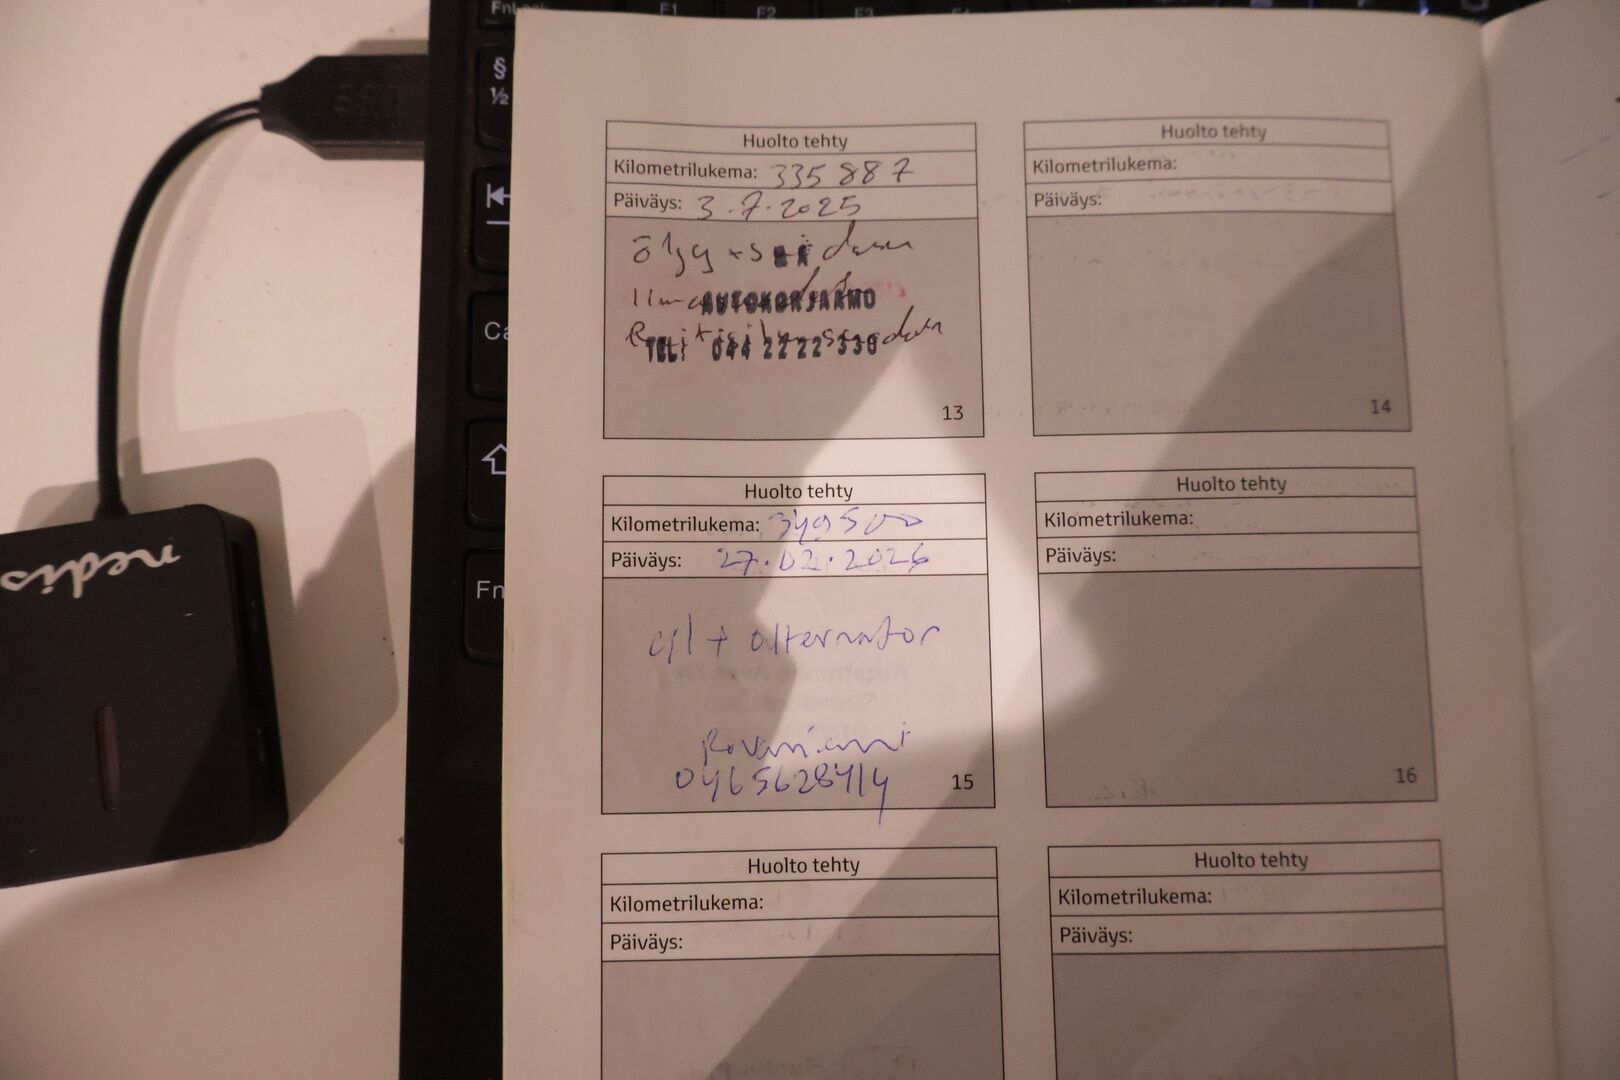 FnLock F1 F2 F3 F4
§
½
Ca
Fn
nedis
Huolto tehty
Kilometrilukema: 335 887
Päiväys: 3.7.2025
öljy + suodatin
AUTOKORJAAMO
TEL: 044 22 22 330
13
Huolto tehty
Kilometrilukema:
Päiväys:
14
Huolto tehty
Kilometrilukema: 349500
Päiväys: 27.02.2026
oil + alternator
Rovaniemi
0465628414
15
Huolto tehty
Kilometrilukema:
Päiväys:
16
Huolto tehty
Kilometrilukema:
Päiväys:
Huolto tehty
Kilometrilukema:
Päiväys: